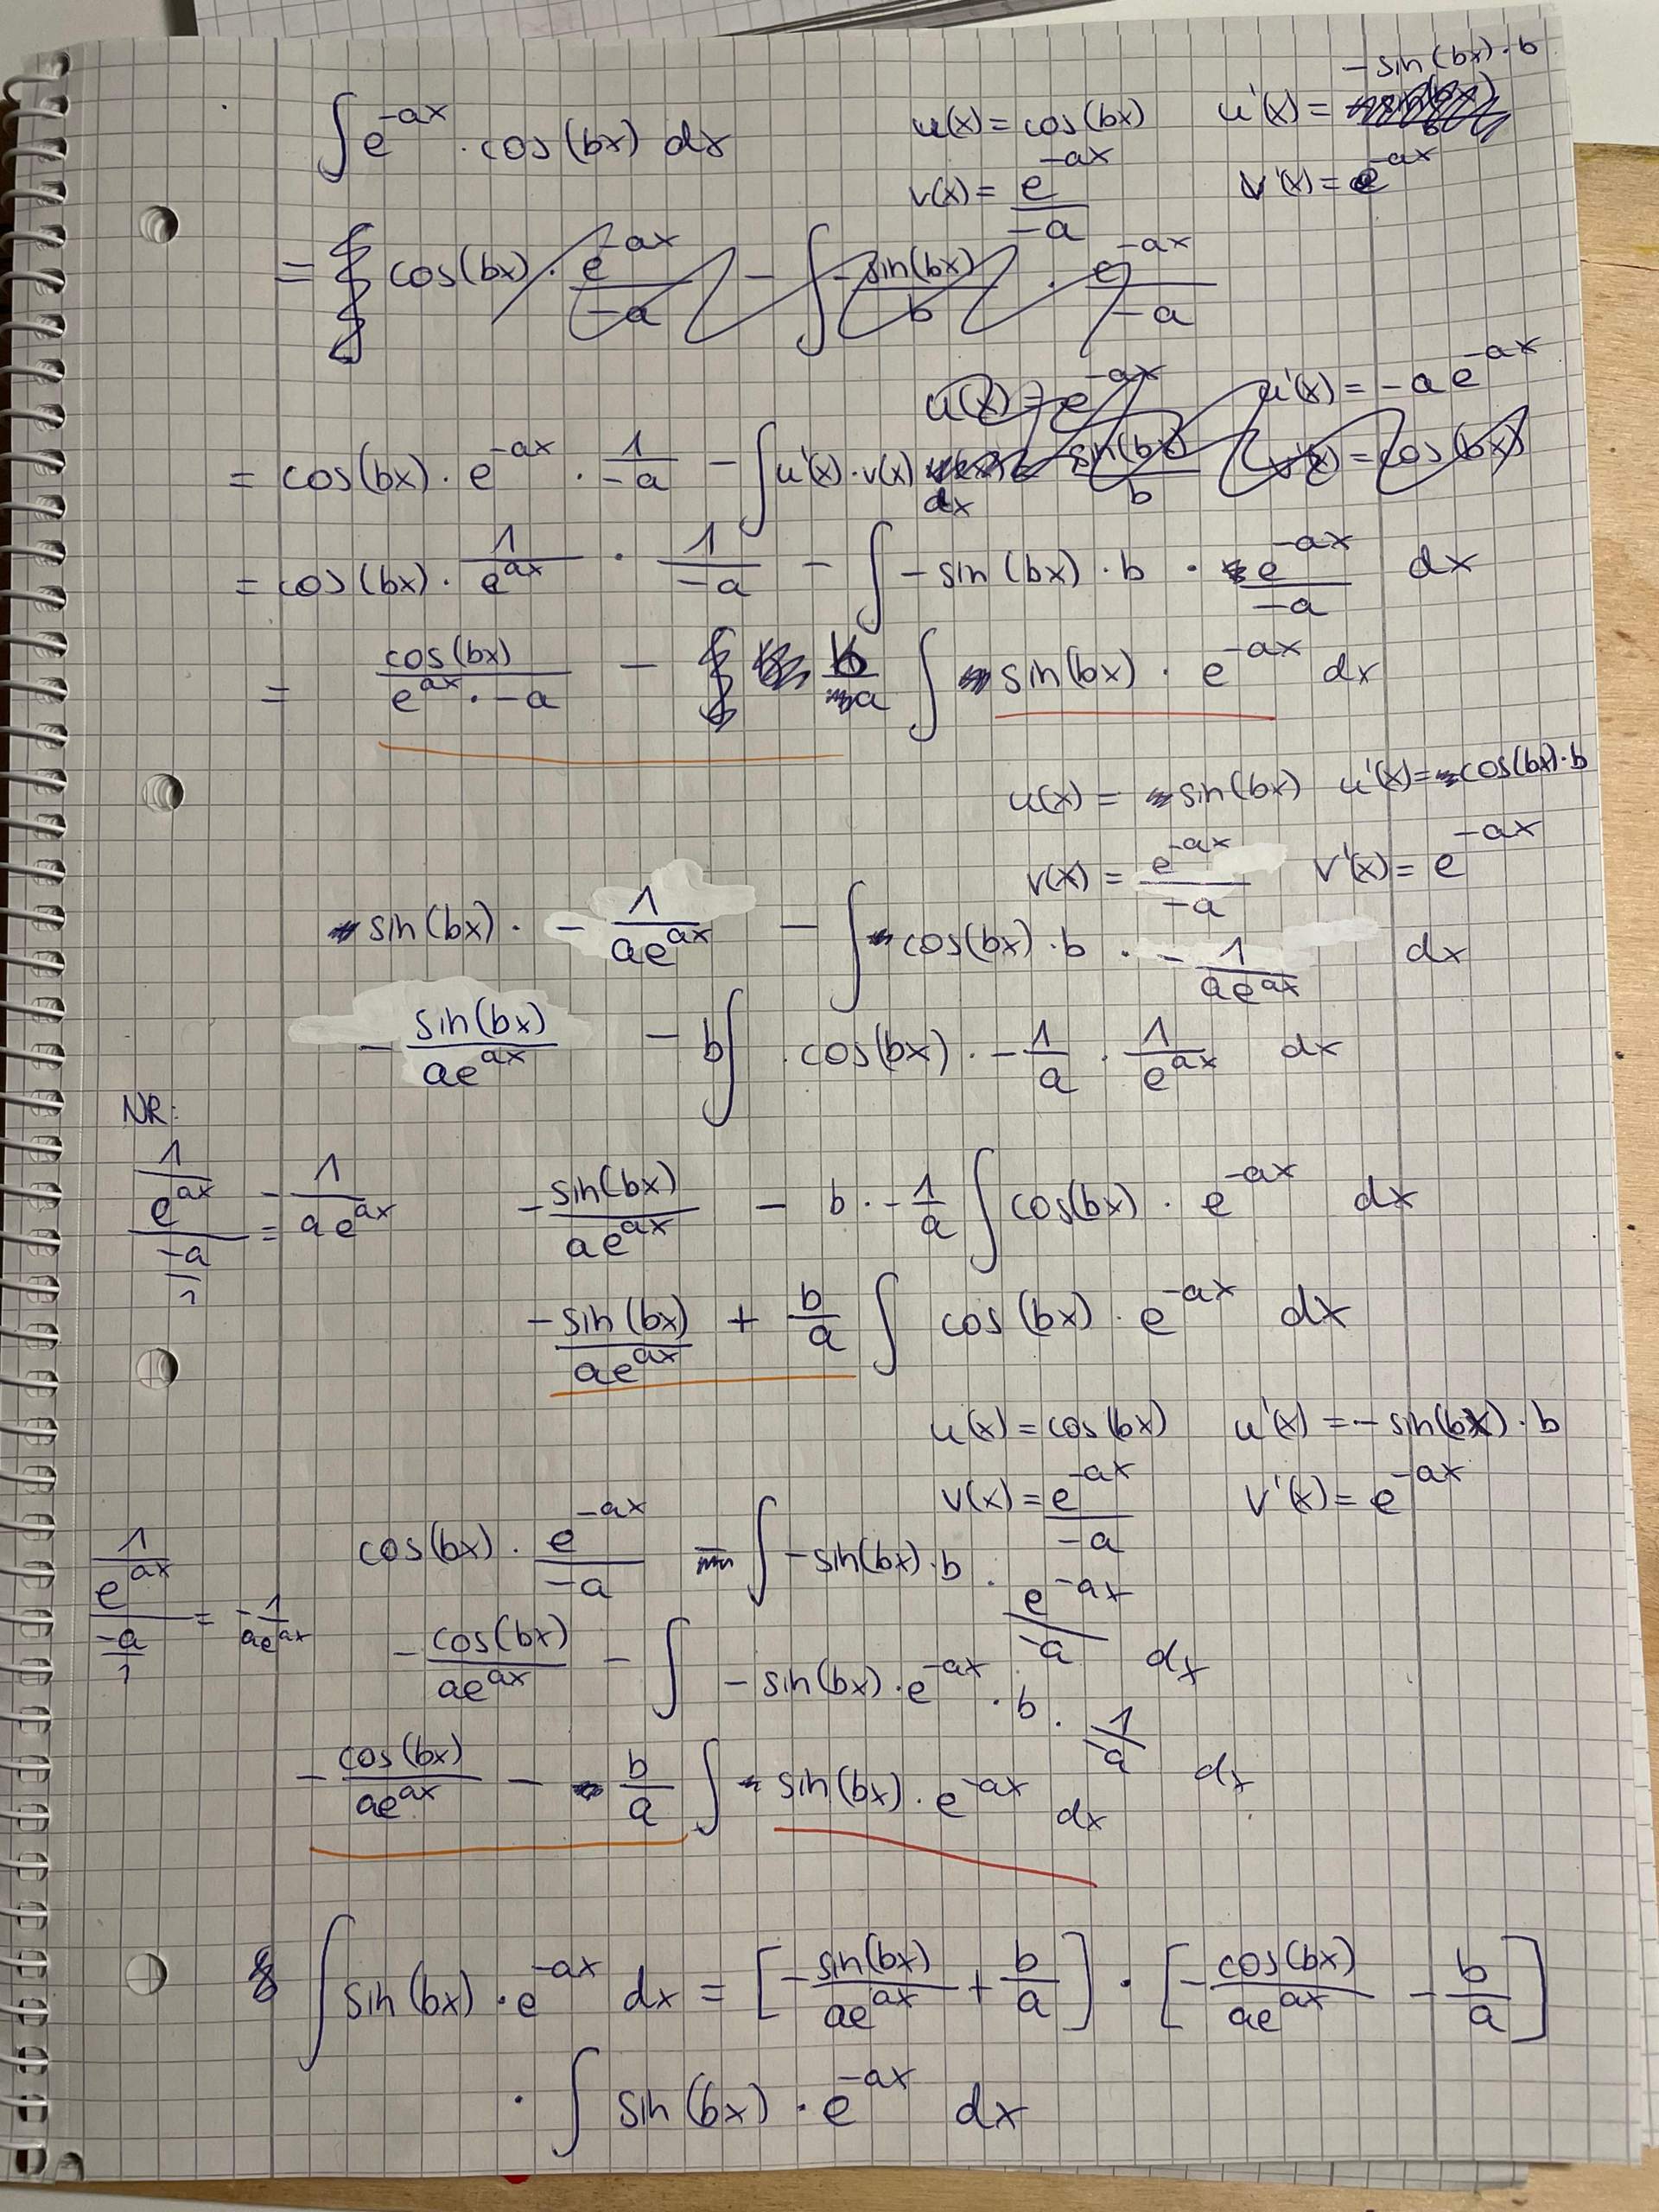 ∫ e^{-ax} · cos(bx) dx    u(x) = cos(bx)    u'(x) = -sin(bx)·b
v(x) = e^{-ax}/-a    v'(x) = e^{-ax}
= cos(bx) · e^{-ax}/-a - ∫ -sin(bx)/b · e^{-ax}/-a
u(x) = e^{-ax}    u'(x) = -a e^{-ax}
sin(bx)/b    v'(x) = cos(bx)
= cos(bx) · e^{-ax} · 1/-a - ∫ u'(x) · v(x) dx
= cos(bx) · 1/e^{ax} · 1/-a - ∫ -sin(bx) · b · e^{-ax}/-a dx
= cos(bx)/(e^{ax} · -a) - b/a ∫ sin(bx) · e^{-ax} dx
u(x) = sin(bx)    u'(x) = cos(bx)·b
v(x) = e^{-ax}/-a    v'(x) = e^{-ax}
sin(bx) · - 1/ae^{ax} - ∫ cos(bx) · b · - 1/ae^{ax} dx
- sin(bx)/ae^{ax} - b∫ · cos(bx) · - 1/a · 1/e^{ax} dx
NR:
1/e^{ax} / -a/1 = - 1/ae^{ax}
- sin(bx)/ae^{ax} - b · - 1/a ∫ cos(bx) · e^{-ax} dx
- sin(bx)/ae^{ax} + b/a ∫ cos(bx) · e^{-ax} dx
u(x) = cos(bx)    u'(x) = - sin(bx) · b
v(x) = e^{-ax}/-a    v'(x) = e^{-ax}
cos(bx) · e^{-ax}/-a - ∫ -sin(bx) · b · e^{-ax}/-a dx
1/e^{ax} / -a/1 = - 1/ae^{ax}
- cos(bx)/ae^{ax} - ∫ - sin(bx) · e^{-ax} · b · 1/-a dx
- cos(bx)/ae^{ax} - b/a ∫ sin(bx) · e^{-ax} dx
∫ sin(bx) · e^{-ax} dx = [- sin(bx)/ae^{ax} + b/a] · [- cos(bx)/ae^{ax} - b/a]
· ∫ sin(bx) · e^{-ax} dx